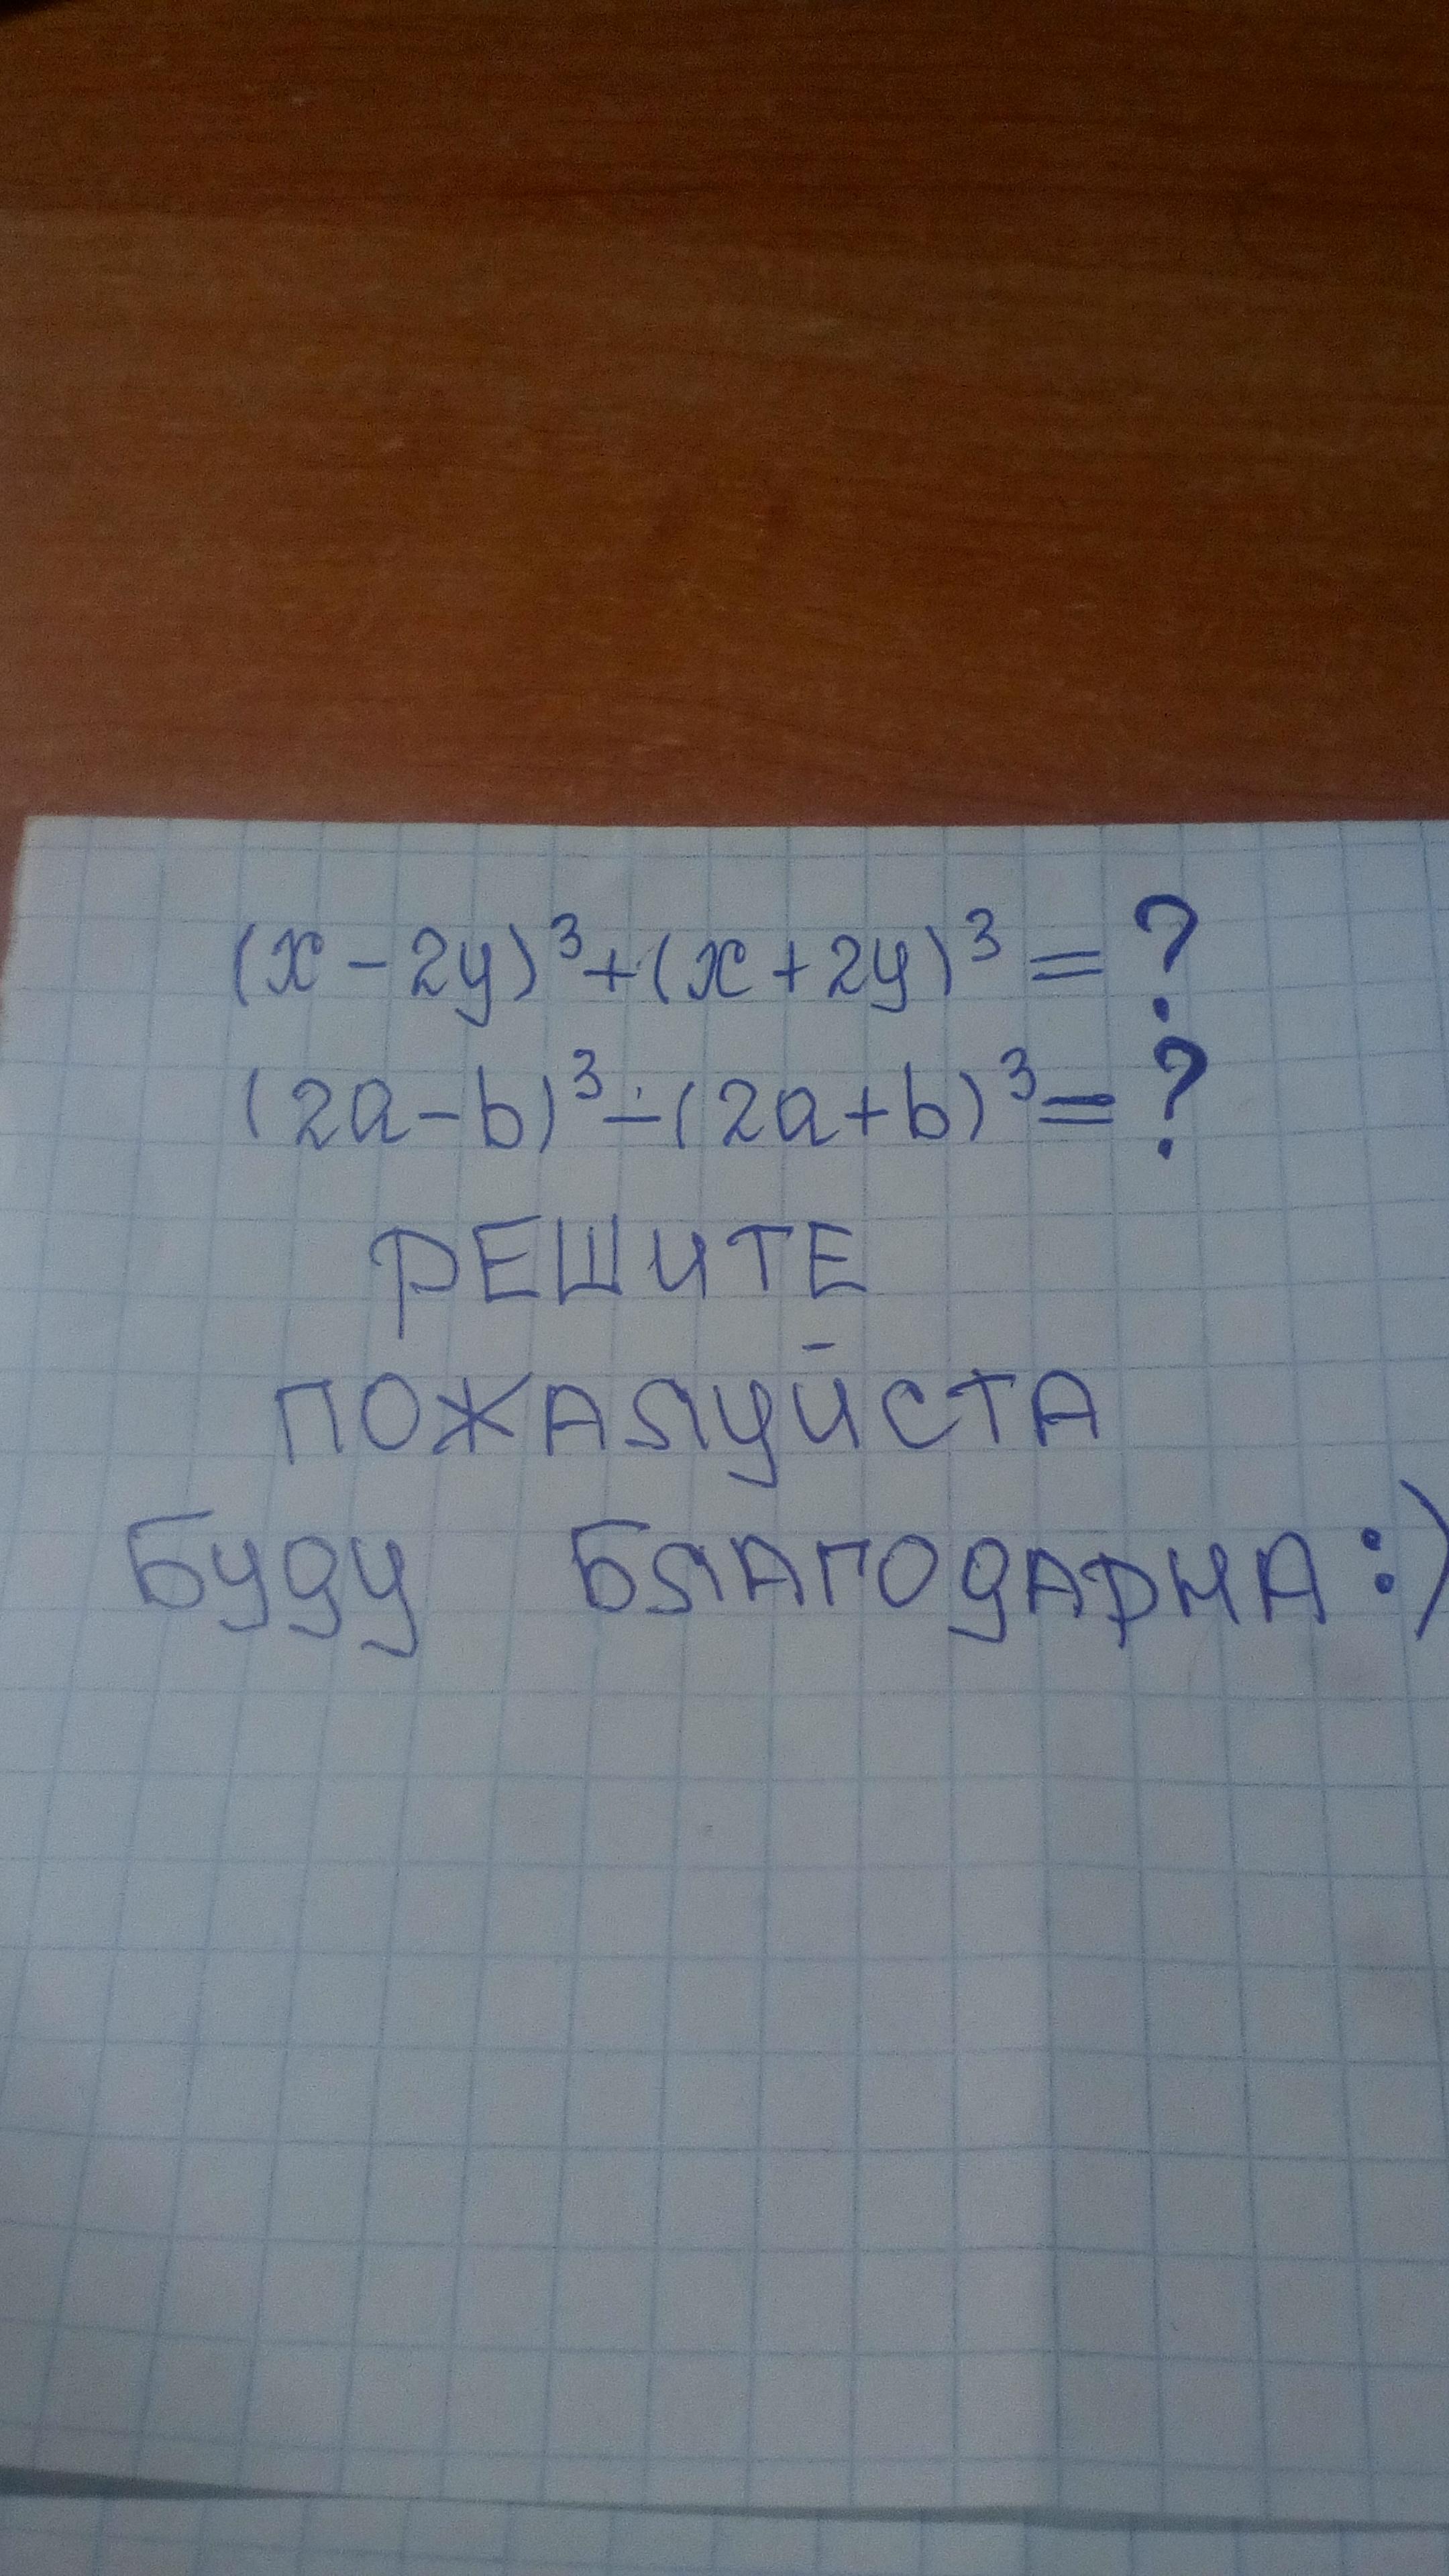 (x-2y)³+(x+2y)³=?
(2a-b)³-(2a+b)³=?
РЕШИТЕ
ПОЖАЛУЙСТА
БУДУ БЛАГОДАРНА:)